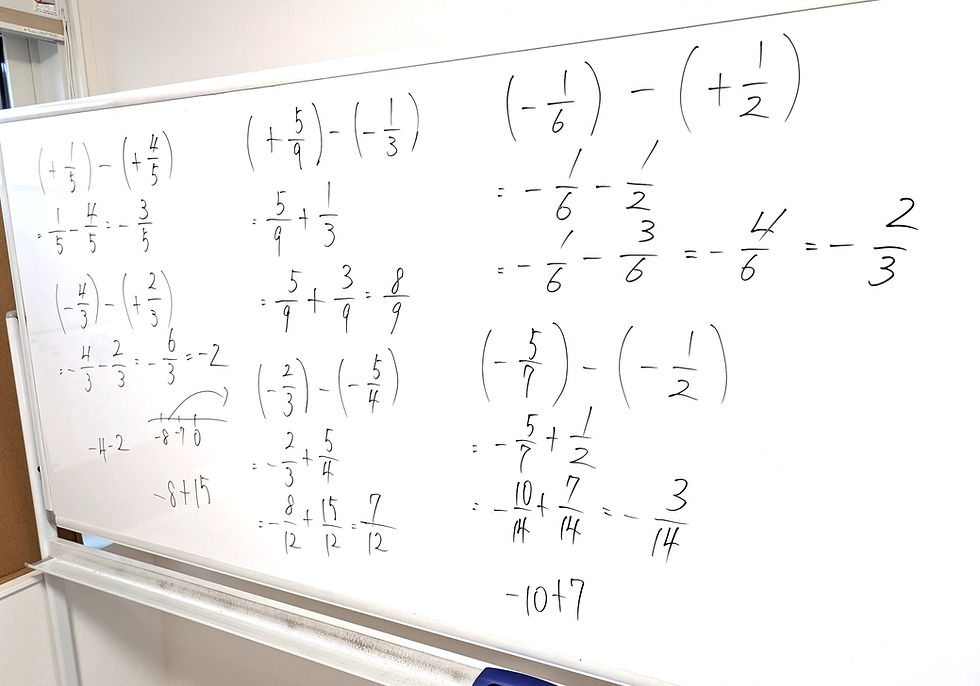 (+1/5)-(+4/5)
=1/5-4/5=-3/5
(-4/3)-(+2/3)
=-4/3-2/3=-6/3=-2
-8 -7 0
-4-2
-8+15
(+5/9)-(-1/3)
=5/9+1/3
=5/9+3/9=8/9
(-2/3)-(-5/4)
=-2/3+5/4
=-8/12+15/12=7/12
(-1/6)-(+1/2)
=-1/6-1/2
=-1/6-3/6=-4/6=-2/3
(-5/7)-(-1/2)
=-5/7+1/2
=-10/14+7/14=-3/14
-10+7